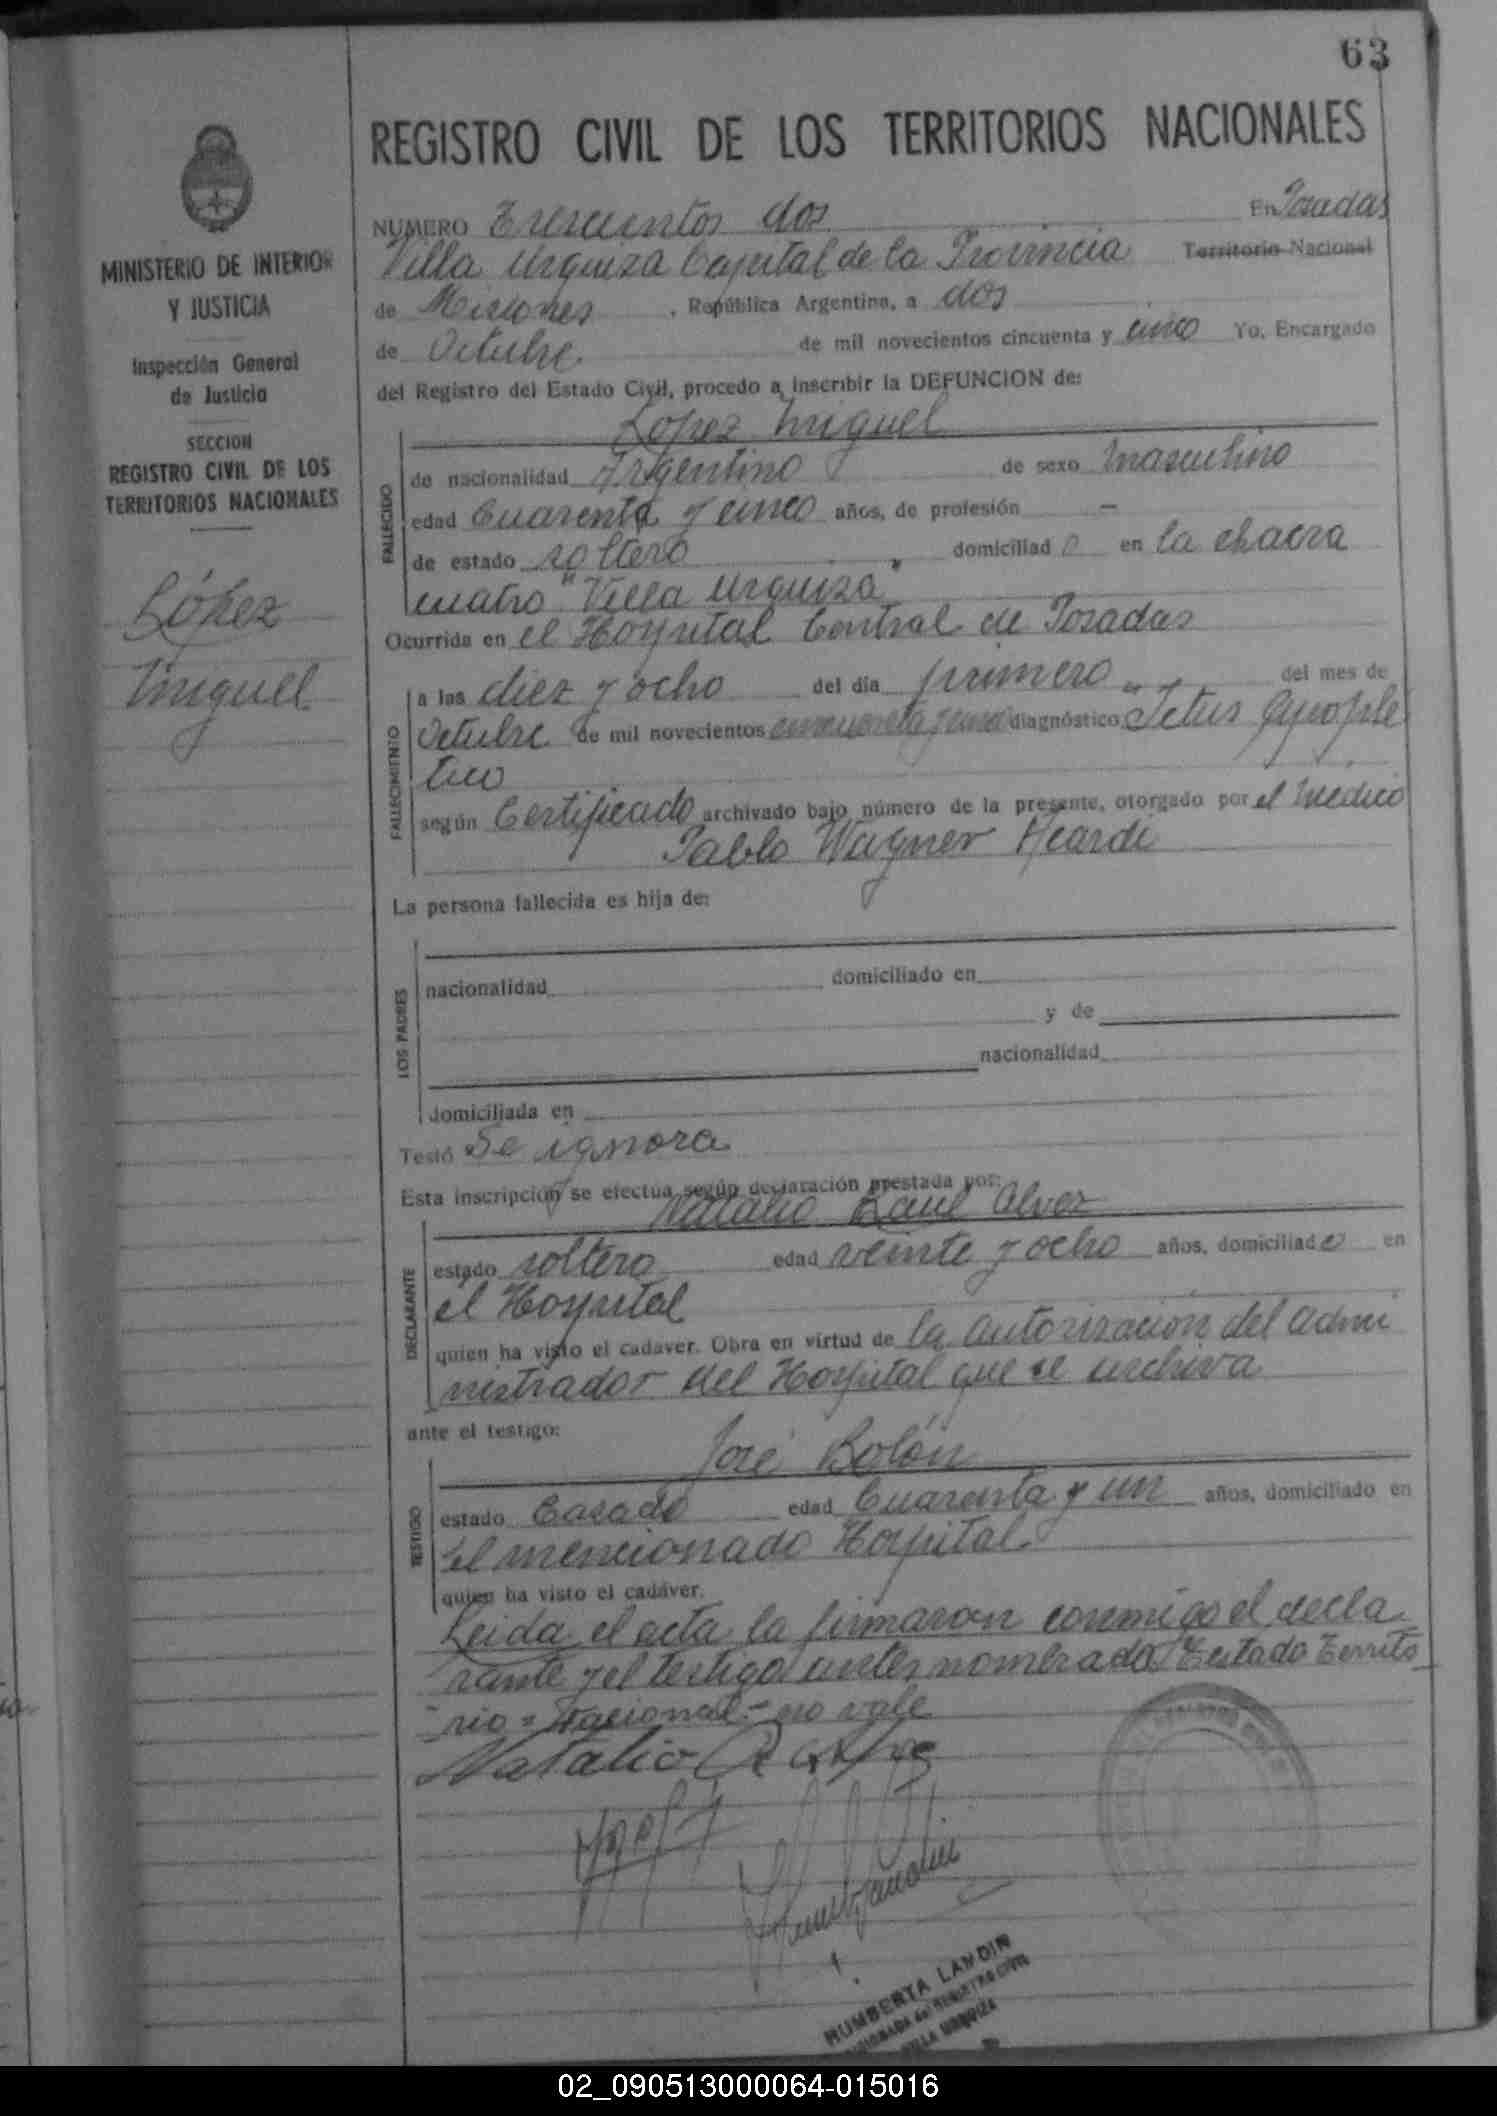 63
REGISTRO CIVIL DE LOS TERRITORIOS NACIONALES
MINISTERIO DE INTERIOR
Y JUSTICIA
Inspección General
de Justicia
SECCION
REGISTRO CIVIL DE LOS
TERRITORIOS NACIONALES
López
Miguel
NUMERO Trescientos dos En Posadas
Villa Urquiza Capital de la Provincia Territorio Nacional
de Misiones, República Argentina, a dos
de Octubre de mil novecientos cincuenta y cinco Yo, Encargado
del Registro del Estado Civil, procedo a inscribir la DEFUNCION de:
López Miguel
FALLECIDO
de nacionalidad Argentino de sexo masculino
edad Cuarenta y cinco años, de profesión —
de estado soltero domiciliado en la chacra
cuatro "Villa Urquiza"
Ocurrida en el Hospital Central de Posadas
FALLECIMIENTO
a las diez y ocho del día primero del mes de
Octubre de mil novecientos cincuenta y cinco diagnóstico "Ictus Apople
tico
según Certificado archivado bajo número de la presente, otorgado por el médico
Pablo Wagner
La persona fallecida es hija de:
LOS PADRES
nacionalidad domiciliado en
y de
nacionalidad
domiciliada en
Testó Se ignora
Esta inscripción se efectúa según declaración prestada por:
Natalio Raul Alvez
DECLARANTE
estado soltero edad veinte y ocho años, domiciliado en
el Hospital
quien ha visto el cadaver. Obra en virtud de la autorización del admi
nistrador del Hospital que se archiva
ante el testigo:
José Bolón
TESTIGO
estado Casado edad Cuarenta y un años, domiciliado en
el mencionado Hospital
quien ha visto el cadáver.
Leida el acta la firmaron conmigo el decla
rante y el testigo antes nombrado Testado Territo
rio = Nacional = no vale
Natalio R Alvez
HUMBERTA LANDIN
ENCARGADA del REGISTRO CIVIL
VILLA URQUIZA
02_090513000064-015016